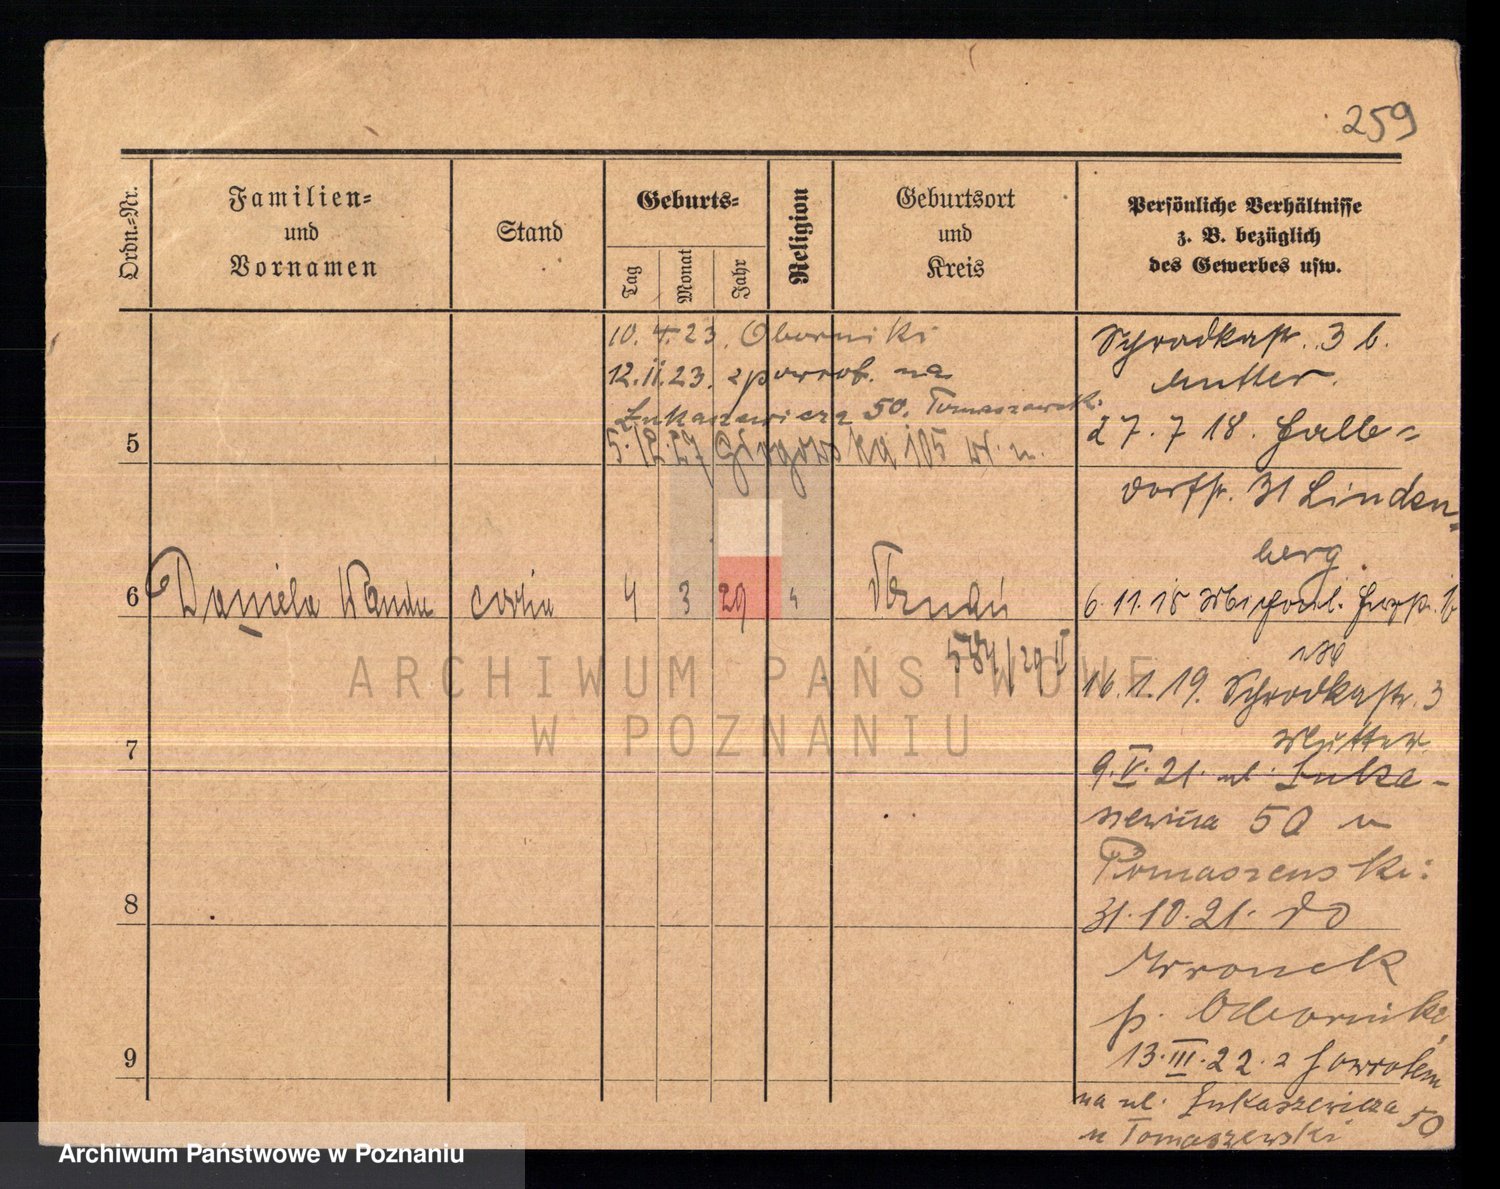 259
Ordn.-Nr.
Familien-
und
Vornamen
Stand
Geburts-
Tag
Monat
Jahr
Religion
Geburtsort
und
Kreis
Persönliche Verhältnisse
z. B. bezüglich
des Gewerbes usw.
10. 4. 23. Oborniki
12. II. 23. z powrot. na
Łukaszewicza 50. Tomaszewski
5
5. 12. 27 105
6
Daniela Wanda córka 4 3 29
584/29 II
7
8
9
Schrodkastr. 3 b.
Mutter.
27. 7 18. Hallb=
dorfstr. 31 Linden=
berg.
6. 11. 18
16. 1. 19. Schrodkastr. 3
Mutter
9. V. 21. ul. Łuka-
szewicza 50 u
Tomaszewski:
31. 10. 21. do
Wronek
p. Oborniki,
13. III. 22. z powrotem
na ul. Łukaszewicza 50
u Tomaszewski
ARCHIWUM PAŃSTWOWE
W POZNANIU
Archiwum Państwowe w Poznaniu